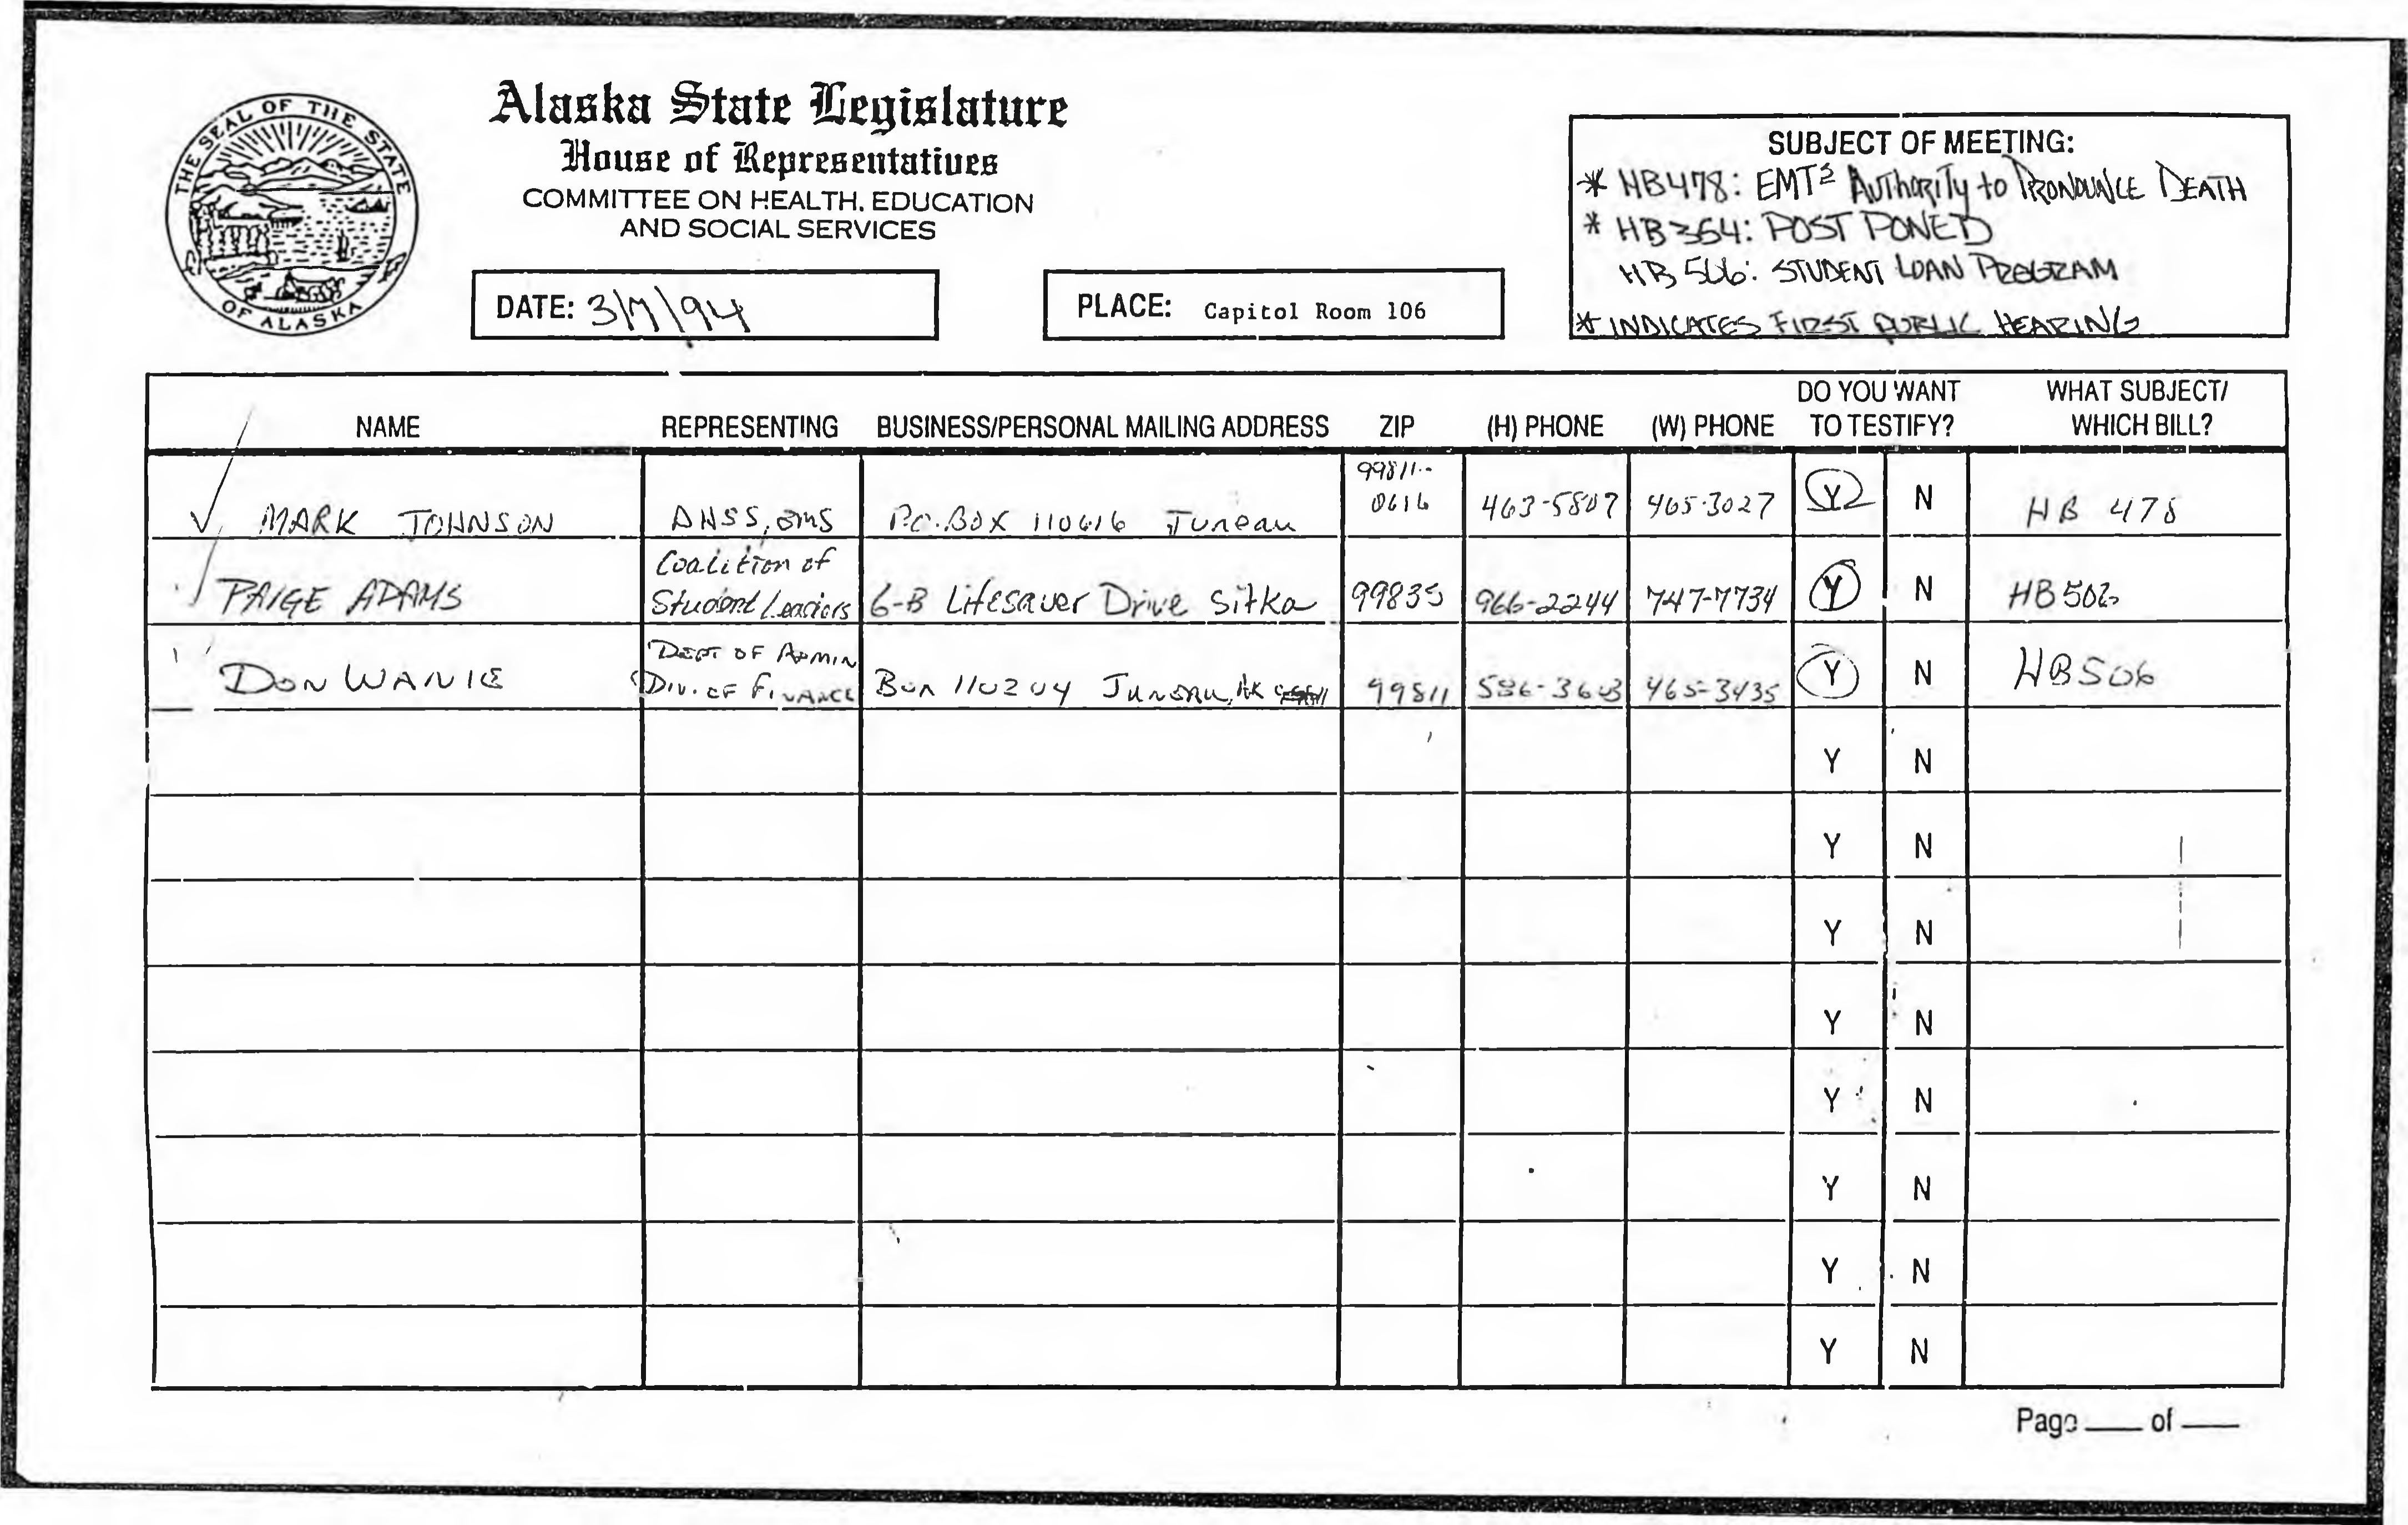 THE SEAL OF THE STATE OF ALASKA
Alaska State Legislature
House of Representatives
COMMITTEE ON HEALTH, EDUCATION
AND SOCIAL SERVICES
DATE: 3/7/94
PLACE: Capitol Room 106
SUBJECT OF MEETING:
* HB478: EMTs Authority to PRONOUNCE DEATH
* HB364: POSTPONED
HB 506: STUDENT LOAN PROGRAM
* INDICATES FIRST PUBLIC HEARING
NAME REPRESENTING BUSINESS/PERSONAL MAILING ADDRESS ZIP (H) PHONE (W) PHONE DO YOU WANT TO TESTIFY? WHAT SUBJECT/ WHICH BILL?
✓ MARK JOHNSON DHSS, EMS P.O. BOX 110616 Juneau 99811-0616 463-5807 465-3027 Y N HB 478
PAIGE ADAMS Coalition of Student Leaders 6-B Lifesaver Drive Sitka 99835 966-2244 747-7734 Y N HB 506
DON WANIE DEPT OF ADMIN DIV. OF FINANCE Box 110204 JUNEAU, AK 99811 465-3435 Y N HB506
Y N
Y N
Y N
Y N
Y N
Y N
Y N
Y N
Page ____ of ____